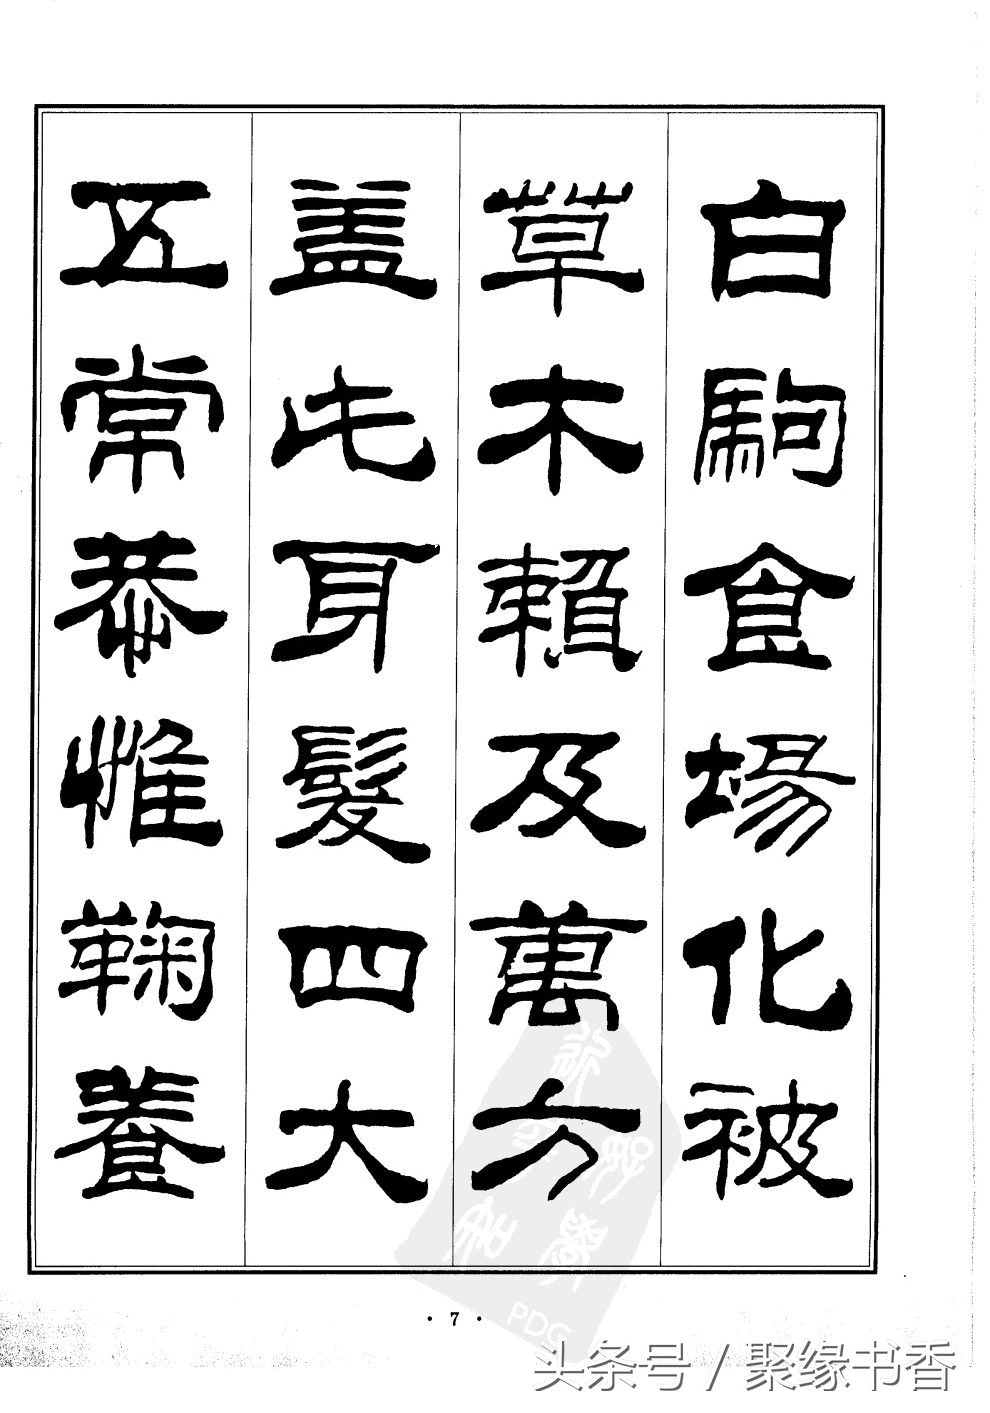 白駒食場化被
草木賴及萬方
盖此身髮四大
五常恭惟鞠養
· 7 ·
PDG
头条号 / 聚缘书香